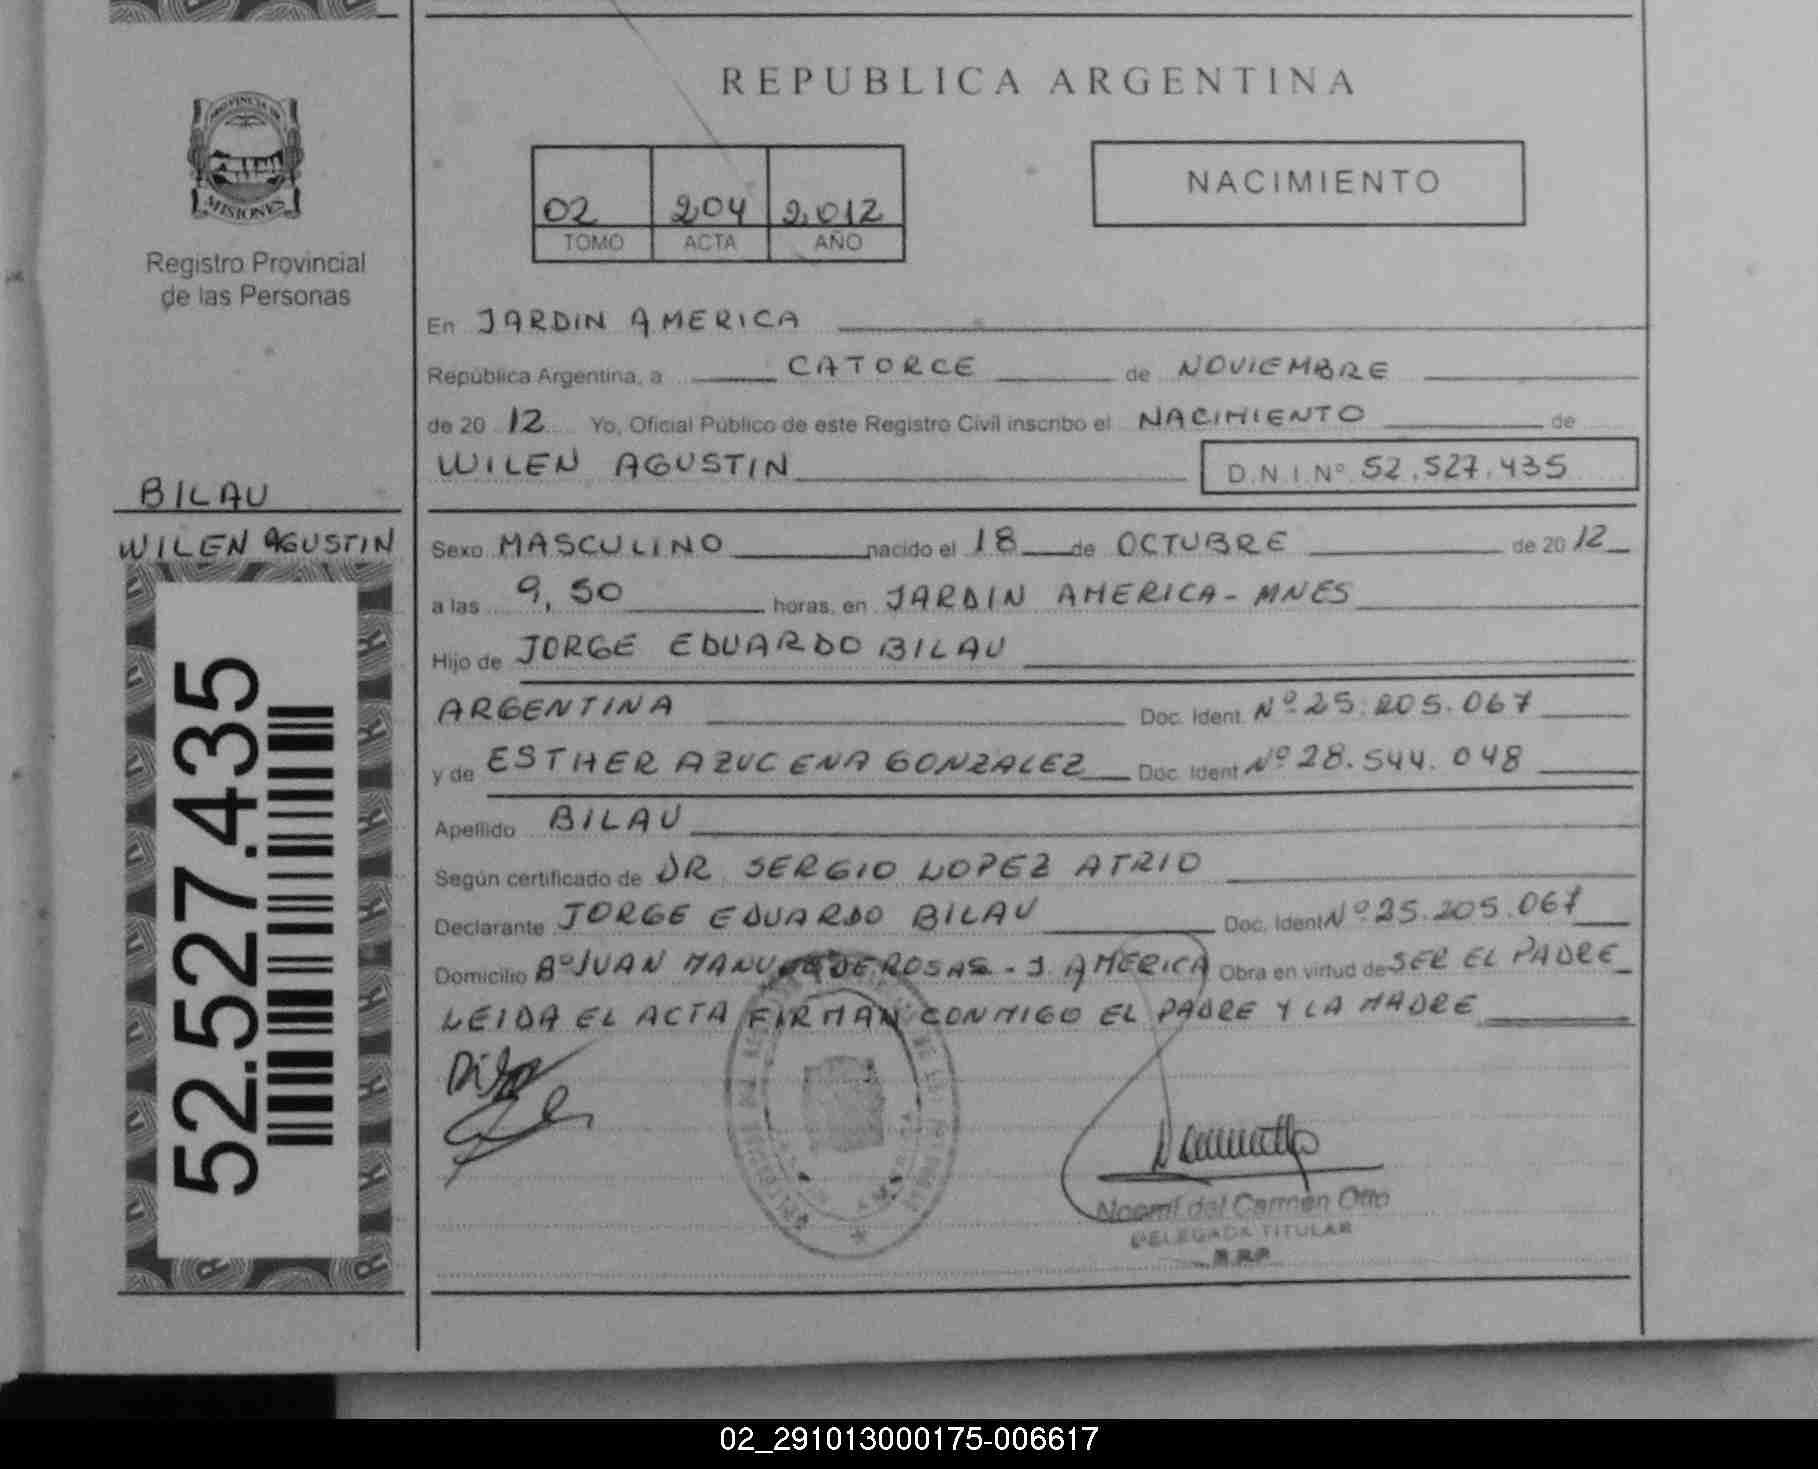 REPUBLICA ARGENTINA
PROVINCIA DE
MISIONES
Registro Provincial
de las Personas
02 204 2.012
TOMO ACTA AÑO
NACIMIENTO
En JARDIN AMERICA
República Argentina, a CATORCE de NOVIEMBRE
de 20 12 Yo, Oficial Público de este Registro Civil inscribo el NACIMIENTO de
WILEN AGUSTIN D.N.I.Nº 52.527.435
BILAU
WILEN AGUSTIN
52.527.435
Sexo MASCULINO nacido el 18 de OCTUBRE de 20 12
a las 9,50 horas, en JARDIN AMERICA - MNES
Hijo de JORGE EDUARDO BILAU
ARGENTINA Doc. Ident. Nº 25.205.067
y de ESTHER AZUCENA GONZALEZ Doc. Ident Nº 28.544.048
Apellido BILAU
Según certificado de DR. SERGIO LOPEZ ATRIO
Declarante JORGE EDUARDO BILAU Doc. Ident Nº 25.205.067
Domicilio Bº JUAN MANUEL DE ROSAS - J. AMERICA Obra en virtud de SER EL PADRE
LEIDA EL ACTA FIRMAN CONMIGO EL PADRE Y LA MADRE
Noemí del Carmen Otto
DELEGADA TITULAR
02_291013000175-006617